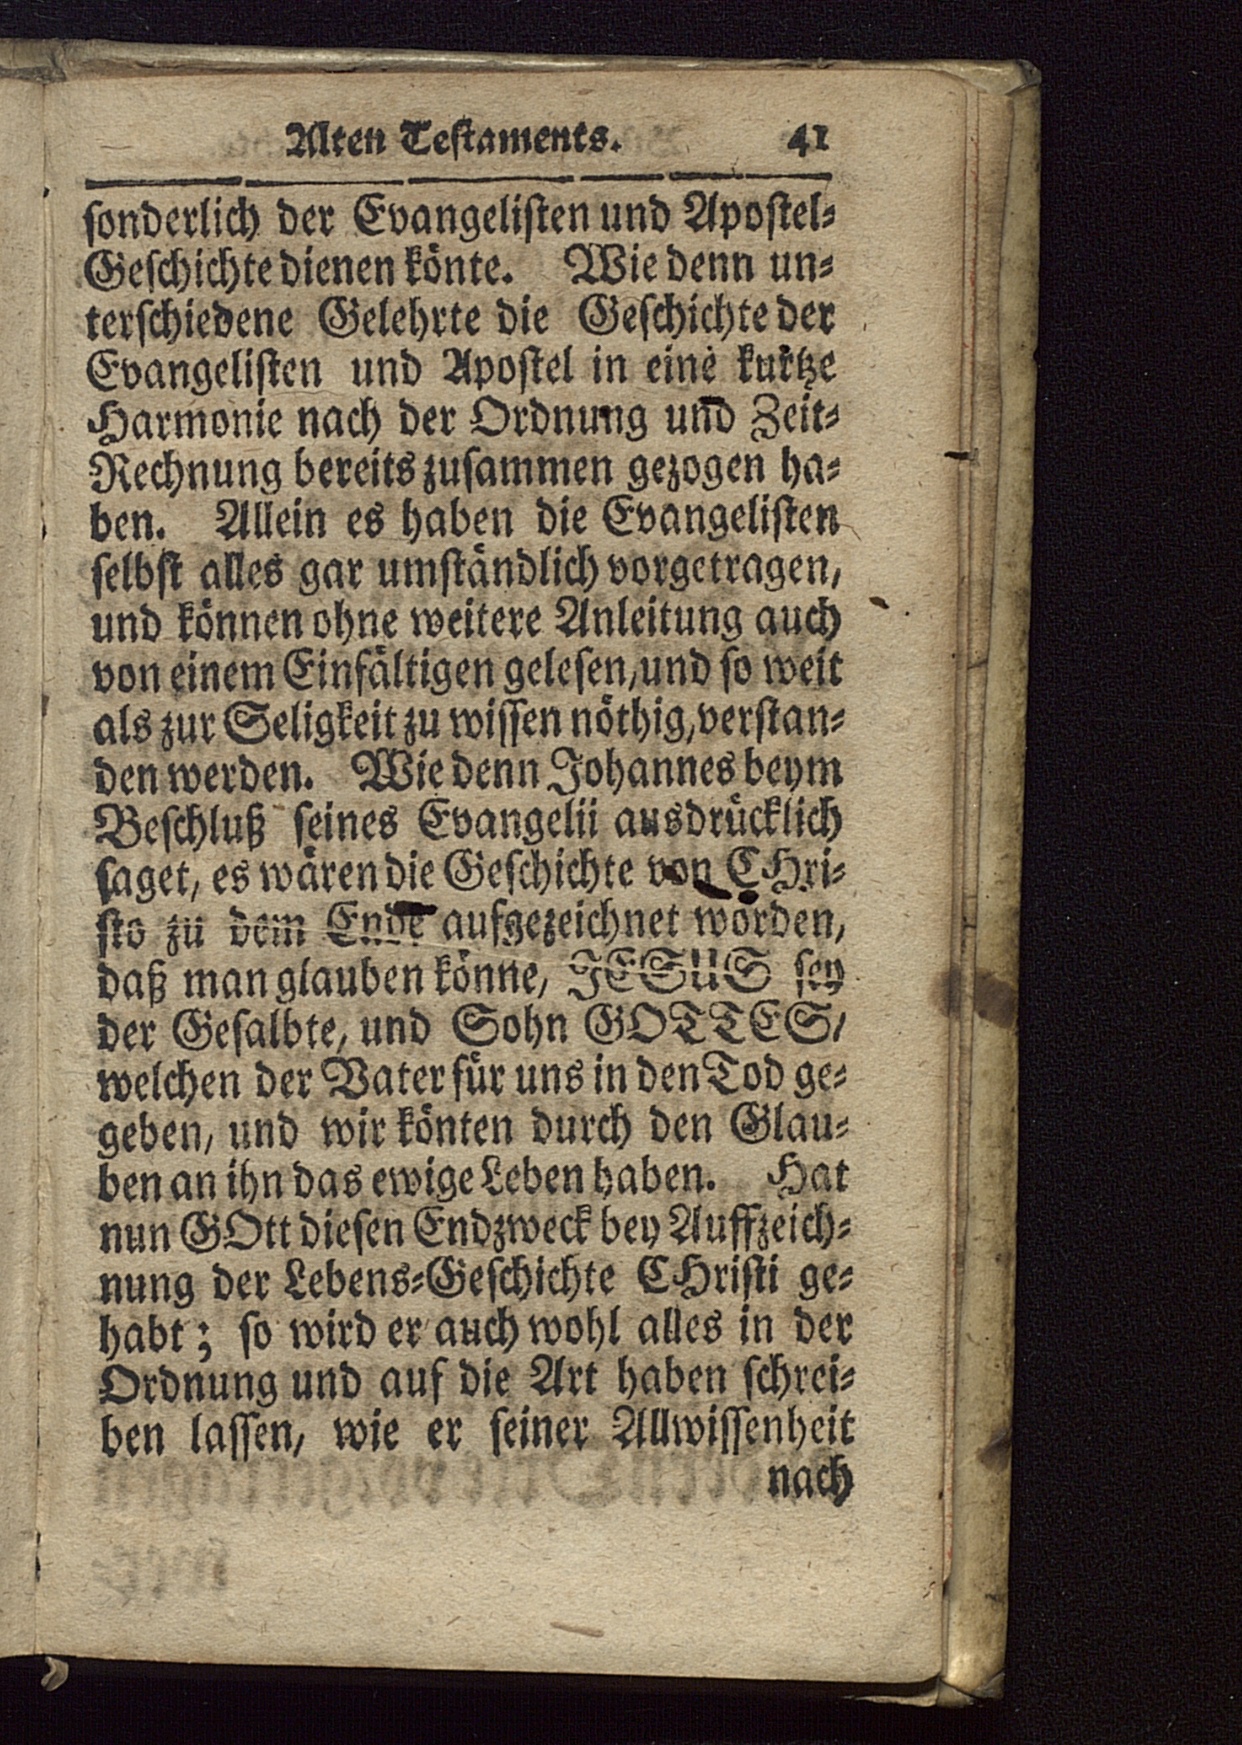 Alten Testaments. 41
sonderlich der Evangelisten und Apostel-
Geschichte dienen könte. Wie denn un-
terschiedene Gelehrte die Geschichte der
Evangelisten und Apostel in eine kurtze
Harmonie nach der Ordnung und Zeit-
Rechnung bereits zusammen gezogen ha-
ben. Allein es haben die Evangelisten
selbst alles gar umständlich vorgetragen,
und können ohne weitere Anleitung auch
von einem Einfältigen gelesen, und so weit
als zur Seligkeit zu wissen nöthig, verstan-
den werden. Wie denn Johannes beym
Beschluß seines Evangelii ausdrücklich
saget, es wären die Geschichte von CHri-
sto zu dem Ende aufgezeichnet worden,
daß man glauben könne, JESUS sey
der Gesalbte, und Sohn GOTTES/
welchen der Vater für uns in den Tod ge-
geben, und wir könten durch den Glau-
ben an ihn das ewige Leben haben. Hat
nun GOtt diesen Endzweck bey Auffzeich-
nung der Lebens-Geschichte CHristi ge-
habt; so wird er auch wohl alles in der
Ordnung und auf die Art haben schrei-
ben lassen, wie er seiner Allwissenheit
nach